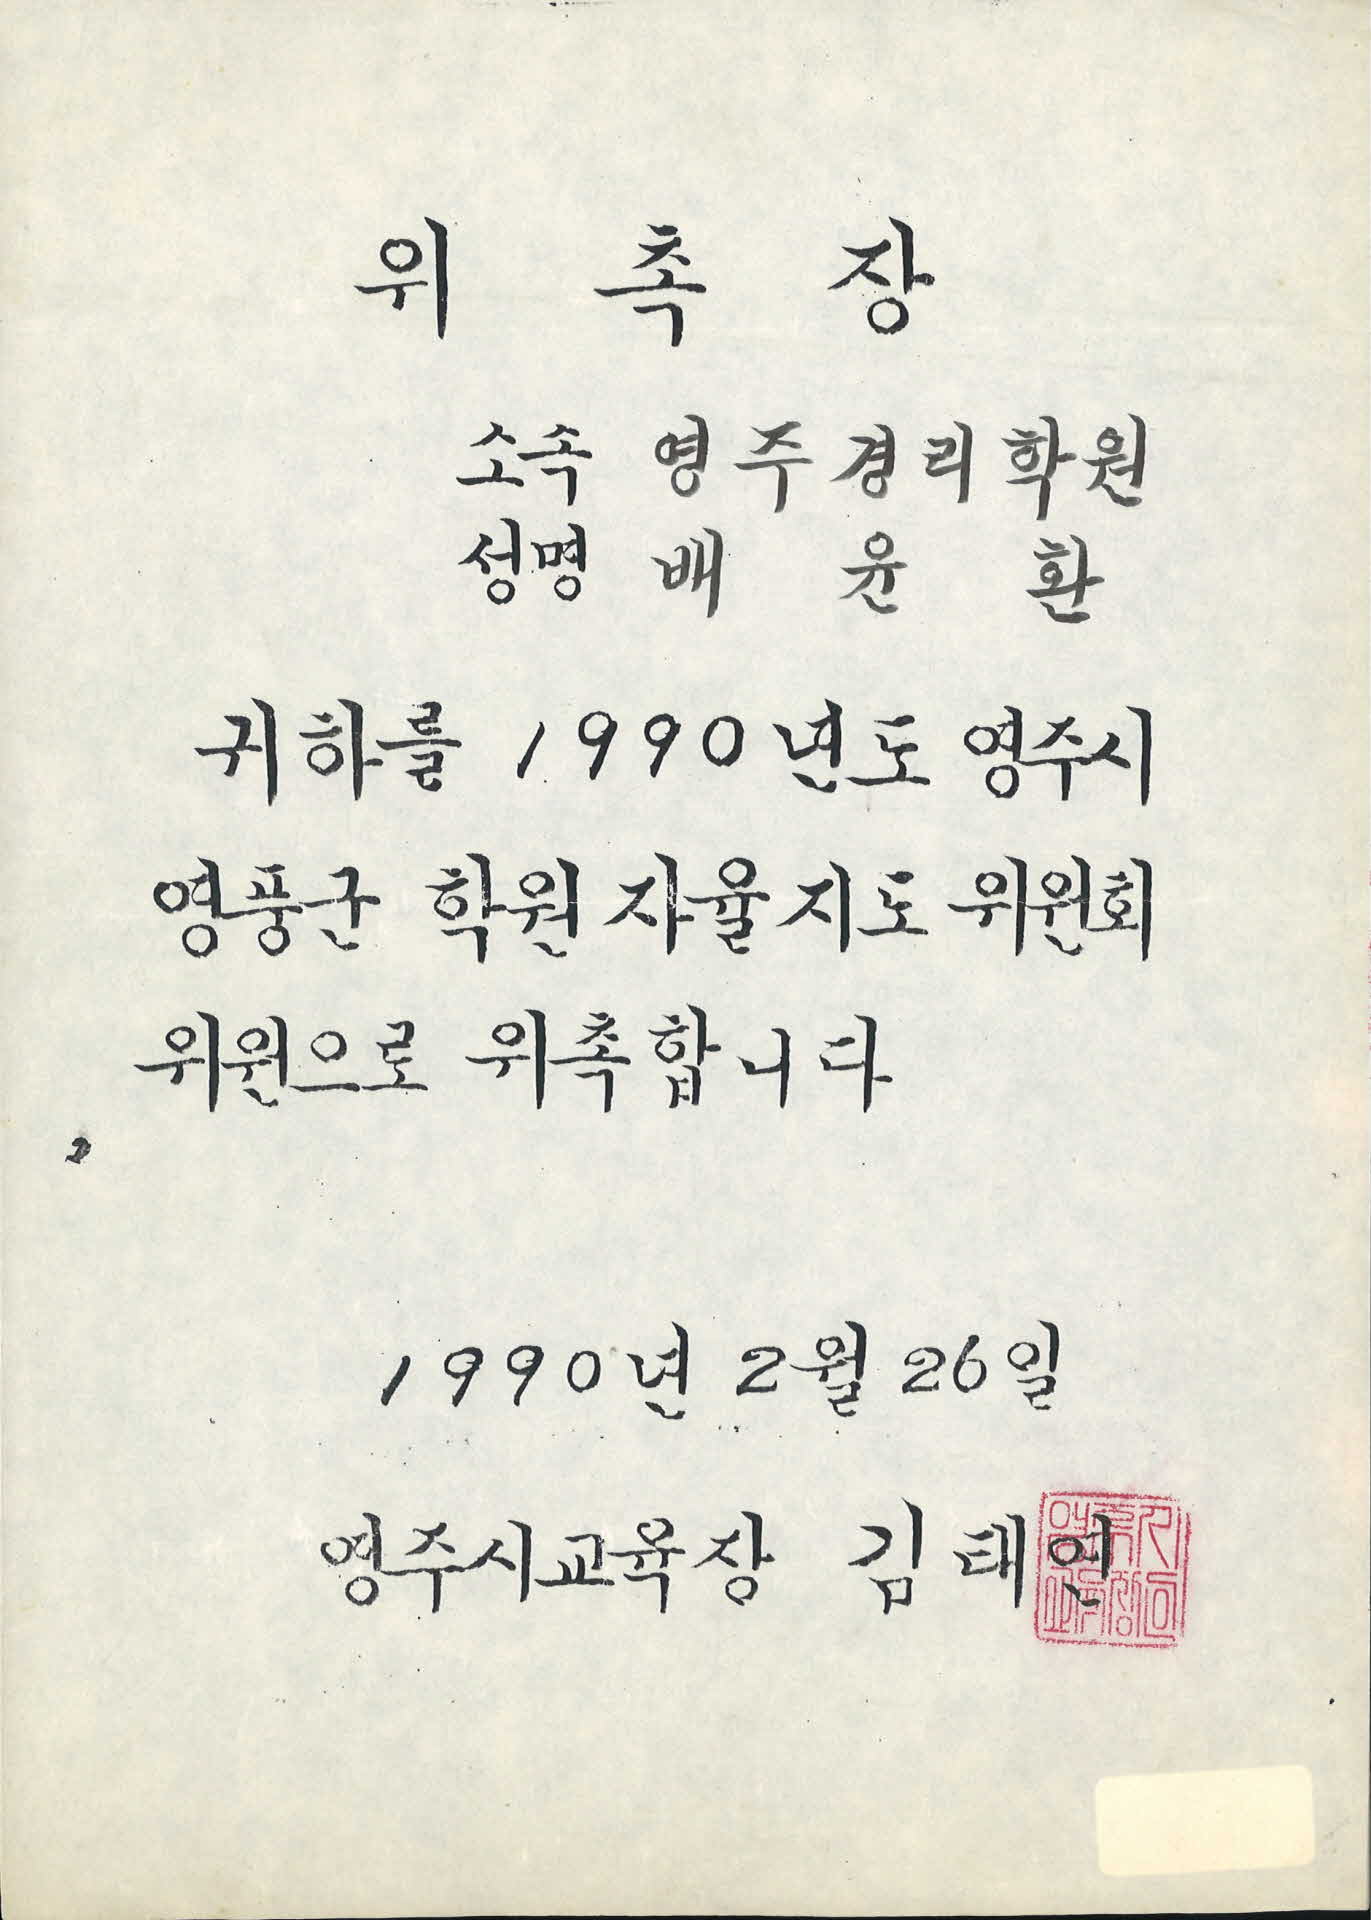 위 촉 장
소속 영주경리학원
성명 배 윤 환
귀하를 1990년도 영주시
영풍군 학원 자율지도 위원회
위원으로 위촉합니다
1990년 2월 26일
영주시교육장 김태연